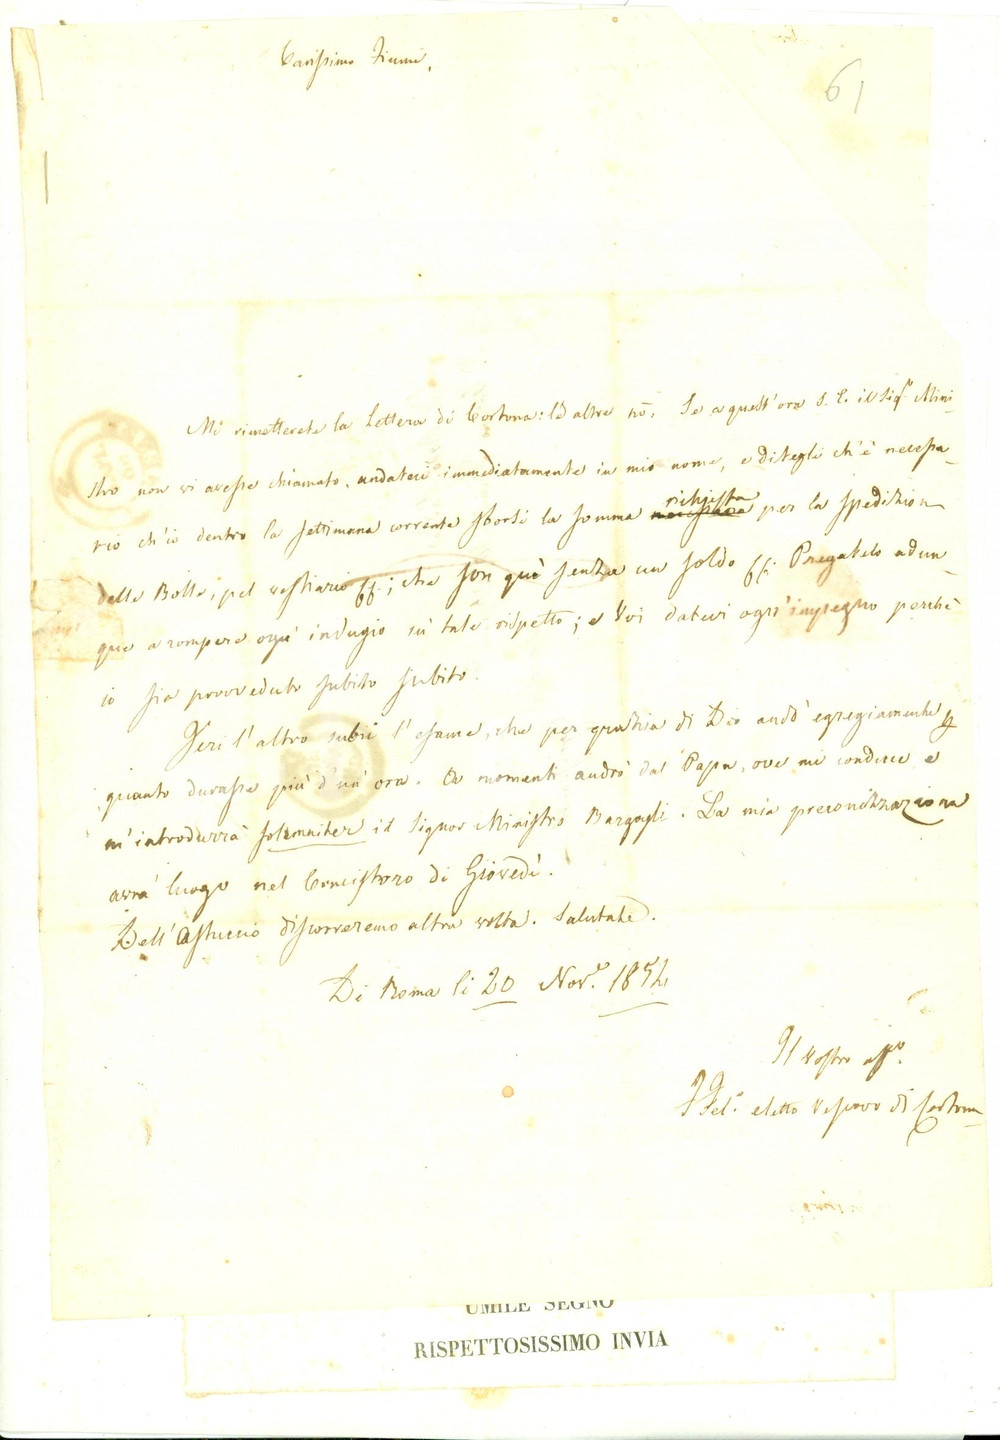 61
Carissimo Fiumi,
Mi rimetterete la Lettera di Cortona: le altre nò. Se a quest'ora S. E. il Sigr. Mini-
stro non vi avesse chiamato, andateci immediatamente in mio nome, e ditegli ch'è necessa-
rio ch'io dentro la settimana corrente sborsi la somma richiesta per la spedizion
delle Bolle, pel vestiario ff; che son quì senza un soldo ff. Pregatelo adun-
que a rompere ogni indugio su tale rispetto; e Voi datevi ogn'impegno perchè
io sia provveduto subito subito.
Jeri l'altro subii l'esame, che per grazia di Dio andò egregiamente
quanto durasse più d'un'ora. A momenti andrò dal Papa, ove mi conduce e
m'introdurrà solemniter il Signor Ministro Bargagli. La mia preconizzazione
avrà luogo nel Concistoro di Giovedì.
Dell'Astuccio discorreremo altra volta. Salutate.
Di Roma li 20 Nov.e 1854
Il Vostro affo.
Fel.e eletto Vescovo di Cortona
UMILE SEGNO
RISPETTOSISSIMO INVIA